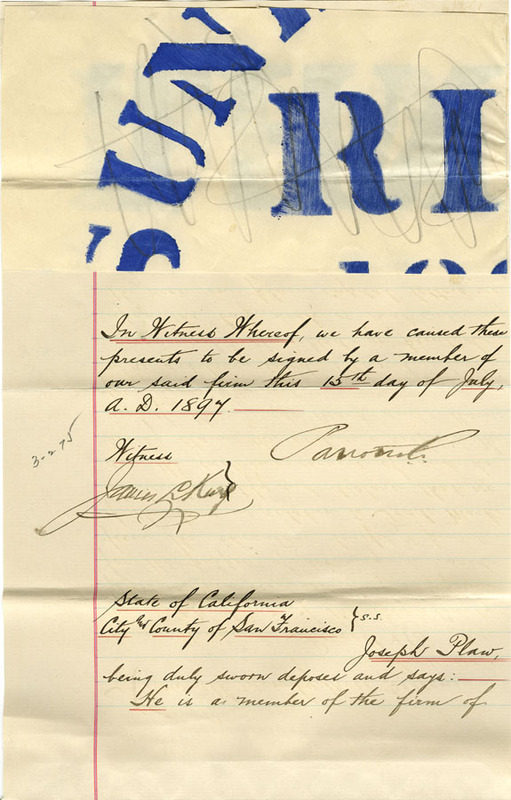 RI
In Witness Whereof, we have caused these
presents to be signed by a member of
our said firm this 15th day of July,
A. D. 1897
Witness
James L King
State of California
City and County of San Francisco } s.s.
Joseph Plaw,
being duly sworn deposes and says:
He is a member of the firm of